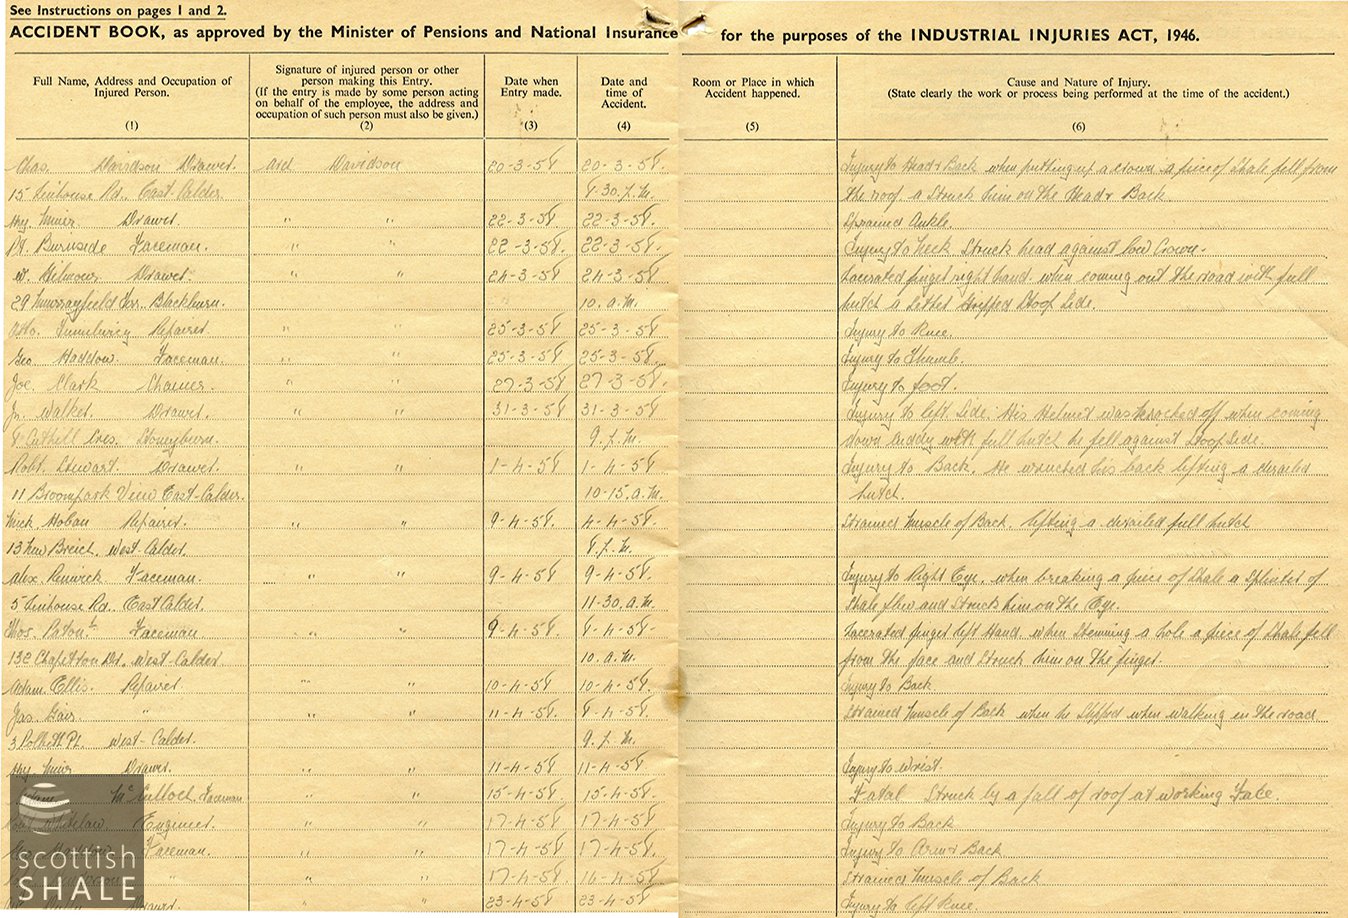 See Instructions on pages 1 and 2.
ACCIDENT BOOK, as approved by the Minister of Pensions and National Insurance for the purposes of the INDUSTRIAL INJURIES ACT, 1946.
Full Name, Address and Occupation of Injured Person. (1)
Signature of injured person or other person making this Entry. (If the entry is made by some person acting on behalf of the employee, the address and occupation of such person must also be given.) (2)
Date when Entry made. (3)
Date and time of Accident. (4)
Room or Place in which Accident happened. (5)
Cause and Nature of Injury. (State clearly the work or process being performed at the time of the accident.) (6)
Chas. Davidson Drawer. Davidson 20-3-58. 20-3-58. Injury to Head & Back when putting up a crown a piece of Shale fell from
15 Rd. East Calder. 8-30. P.M. the roof & Struck him on the Head & Back.
Hy. Muir Drawer. " " 22-3-58. 22-3-58. Sprained Ankle.
Pt. Burnside Faceman. " " 22-3-58. 22-3-58. Injury to Neck Struck head against low Crown.
W. Gilmour Drawer. " " 24-3-58. 24-3-58. Lacerated finger right hand. when coming out the road with full
29 Murrayfield Ter. Blackburn. 10. a.m. hutch & Stoop Side.
Repairer " " 25-3-58 25-3-58. Injury to Knee.
Geo. Haddow. Faceman. " " 25-3-58 25-3-58. Injury to Thumb.
Joe. Clark " " 27-3-58 27-3-58. Injury to foot.
Jn. Walker. Drawer. " " 31-3-58 31-3-58 Injury to left Side. His Helmet was knocked off when coming
8 Cres. Stoneyburn. 9. P.M. down Cuddy with full hutch he fell against Stoop Side.
Robt. Stewart. Drawer. " " 1-4-58 1-4-58 Injury to Back. He wrenched his back lifting a derailed
11 Broompark View East-Calder. 10-15. a.m. hutch.
Mick Hoban Repairer. " " 9-4-58. 4-4-58. Strained Muscle of Back. lifting a derailed full hutch
13 New Breich. West-Calder. 8. P.M.
Alex. Renwick Faceman. " " 9-4-58 9-4-58. Injury to Right Eye. when breaking a piece of Shale a Splinter of
5 Rd. East Calder. 11-30. a.m. Shale flew and Struck him on the Eye.
Thos. Paton Faceman " " 9-4-58. 8-4-58- Lacerated finger left Hand. when Stemming a hole a piece of Shale fell
132 West-Calder. 10. a.m. from the face and Struck him on the finger.
Adam. Ellis. Repairer " " 10-4-58 10-4-58. Injury to Back
Jas. " " " 11-4-58. 8-4-58. Strained Muscle of Back when he Slipped when walking in the road
3 Polbeth Pl. West-Calder. 9. P.M.
Hy. Muir Drawer. " " 11-4-58 11-4-58. Injury to wrist.
McCulloch. Faceman " " 15-4-58 15-4-58. Fatal Struck by a fall of roof at working Face.
Engineer. " " 17-4-58 17-4-58. Injury to Back
Faceman. " " 17-4-58 17-4-58. Injury to Arm & Back
" " " 17-4-58. 16-4-58 Strained Muscle of Back
Drawer. " " 23-4-58 23-4-58. Injury to left Knee.
Scottish
SHALE